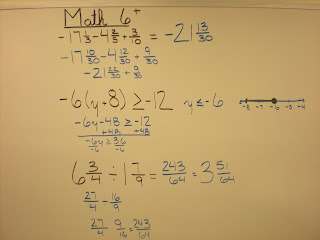 Math 6+
-17 1/3 - 4 2/5 + 3/10 = -21 13/30
-17 10/30 - 4 12/30 + 9/30
-21 22/30 + 9/30
-6(y+8) ≥ -12 y ≤ -6
-8 -7 -6 -5 -4
-6y - 48 ≥ -12
+48 +48
-6y ≥ 36
-6 -6
6 3/4 ÷ 1 7/9 = 243/64 = 3 51/64
27/4 - 16/9
27/4 9/16 = 243/64